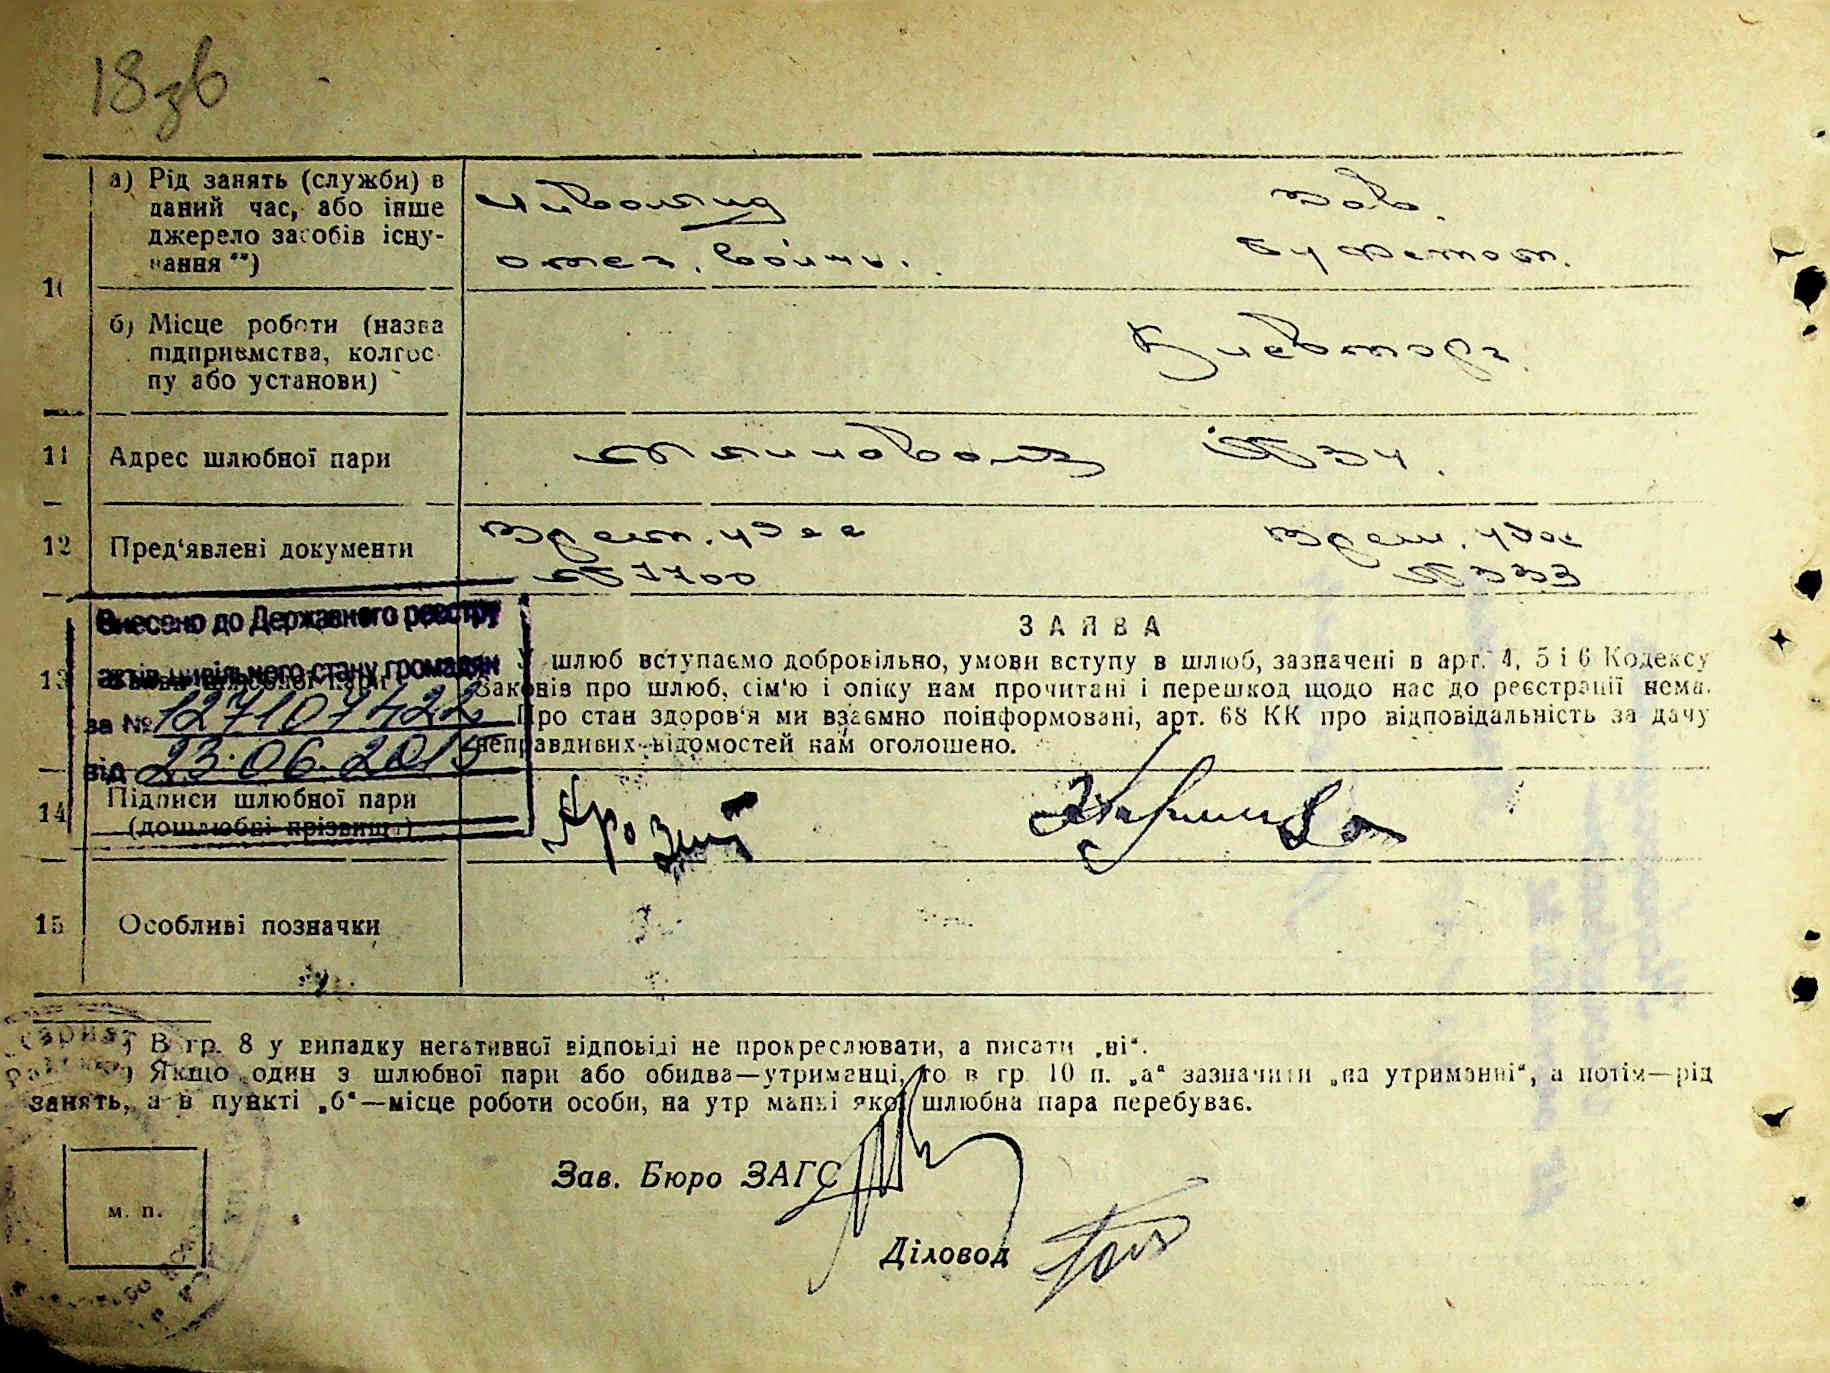 18зв
10 а) Рід занять (служби) в даний час, або інше джерело засобів існування **)
Инвалид Зав.
отеч. войны. буфетом.
б) Місце роботи (назва підприємства, колгоспу або установи)
Киевторг
11 Адрес шлюбної пари
№ 34.
12 Пред'явлені документи
Врем. удос Врем. удос
№ 1700 № 333
Внесено до Державного реєстру
актів цивільного стану громадян
за № 12710 1422
від 23.06.2015
13
ЗАЯВА
У шлюб вступаємо добровільно, умови вступу в шлюб, зазначені в арт. 4, 5 і 6 Кодексу
Законів про шлюб, сім'ю і опіку нам прочитані і перешкод щодо нас до реєстрації нема.
Про стан здоров'я ми взаємно поінформовані, арт. 68 КК про відповідальність за дачу
неправдивих відомостей нам оголошено.
14 Підписи шлюбної пари
(дошлюбні прізвища)
15 Особливі позначки
) В гр. 8 у випадку негативної відповіді не прокреслювати, а писати „ні“.
) Якщо один з шлюбної пари або обидва—утриманці, то в гр 10 п. „а“ зазначити „на утриманні“, а потім—рід
занять, а в пункті „б“—місце роботи особи, на утриманні якої шлюбна пара перебуває.
Зав. Бюро ЗАГС
м. п.
Діловод